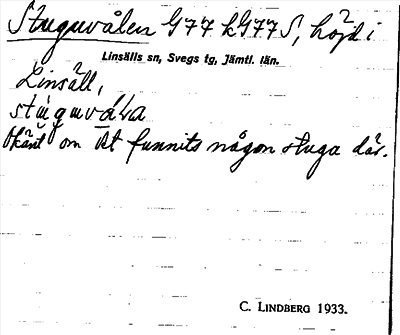 Stuguvålen G77 LG77S, höjd i
Linsälls sn, Svegs tg, Jämtl. län.
Linsäll,
stuguvåla
Okänt om det funnits någon stuga där.
C. LINDBERG 1933.